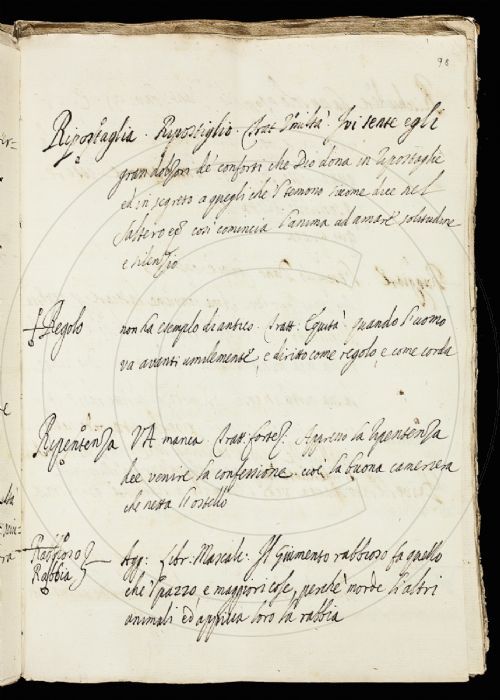 98
Ripostaglia . Ripostiglio . Tratt. Umiltà . Ivi sente egli
grandolzori de' conforti che Dio dona in ripostaglie
ed in segreto a quegli che l temono siccome dice nel
saltero ed così comincia l'anima ad amare solitudine
e silenzio
Regolo non ha esemplo di antico . Tratt. Equità . quando l'uomo
va avanti umilemente, e diritto come regolo, e come corda
Ripentenza VA manca Tratt. fortez. Appresso la ripentenza
dee venire la confessione . cioè la buona cameriera
che netta l'ostello
Rabbioso
Rabbia Agg: Libr. Mascalc. Il Giumento rabbioso fa quello
che 'l pazzo, e maggiori cose, perchè morde l'altri
animali ed appicca loro la rabbia